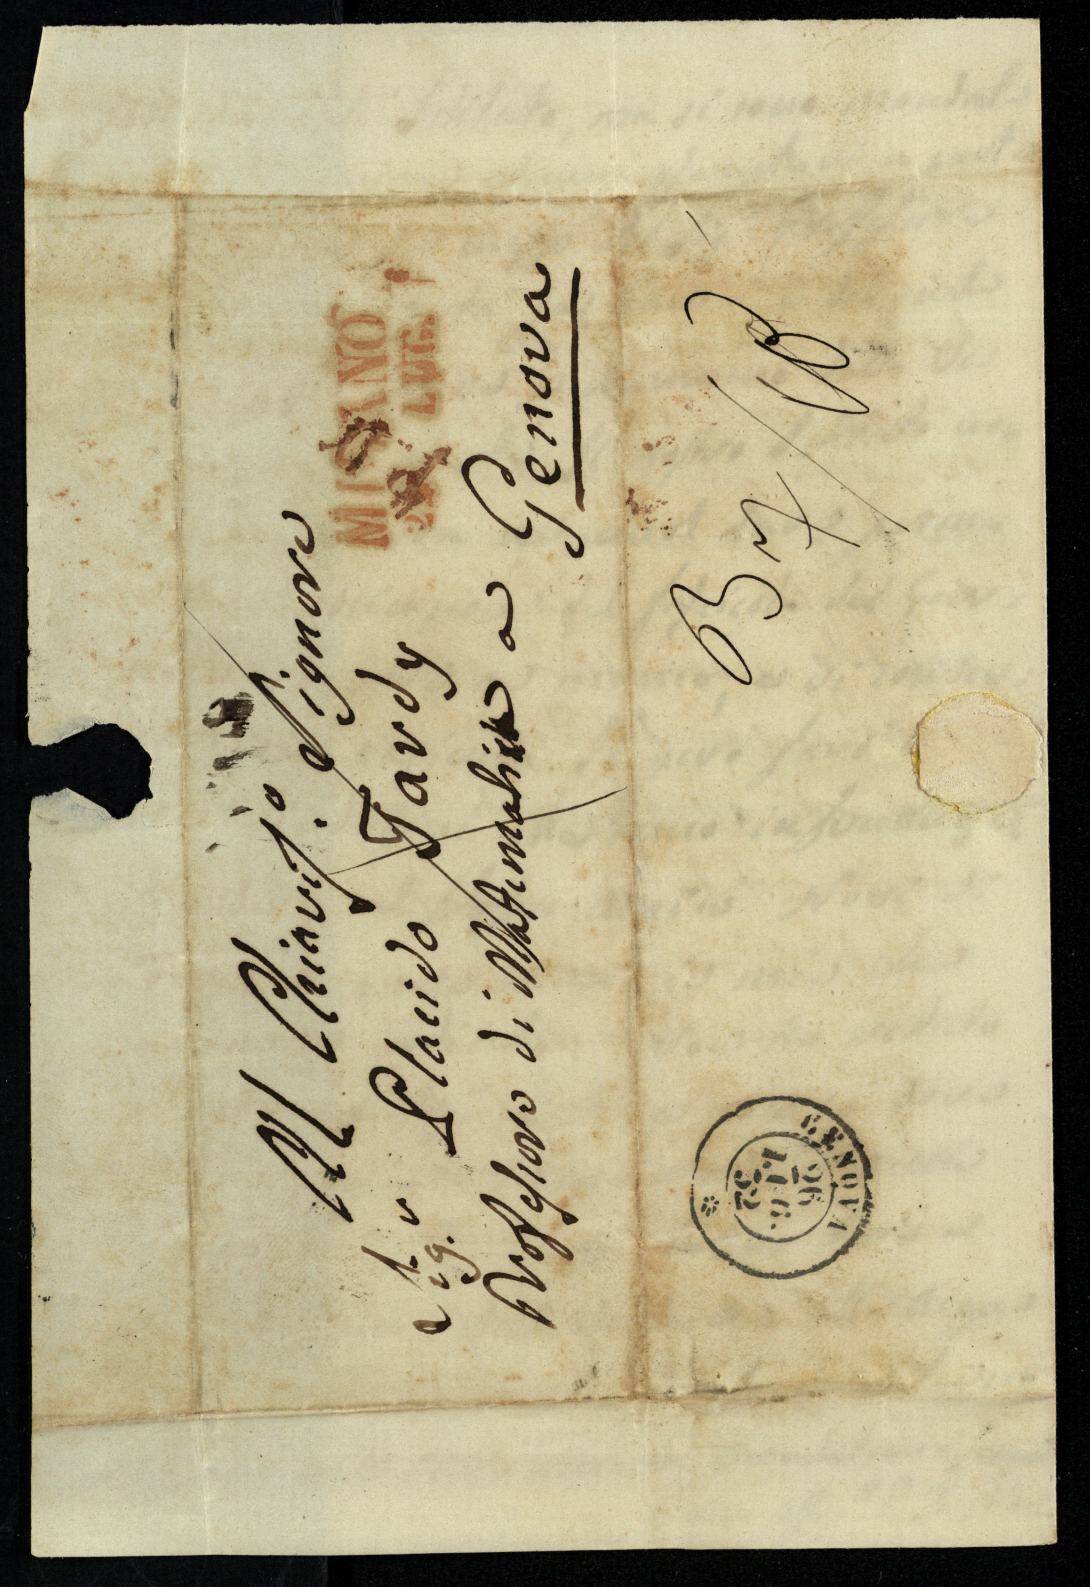 Al Chiariss.o Signore
Sig.r Placido Tardy
Professore di Mattematica a
Genova
MILANO
LUG.
GENOVA
26
LUG.
52